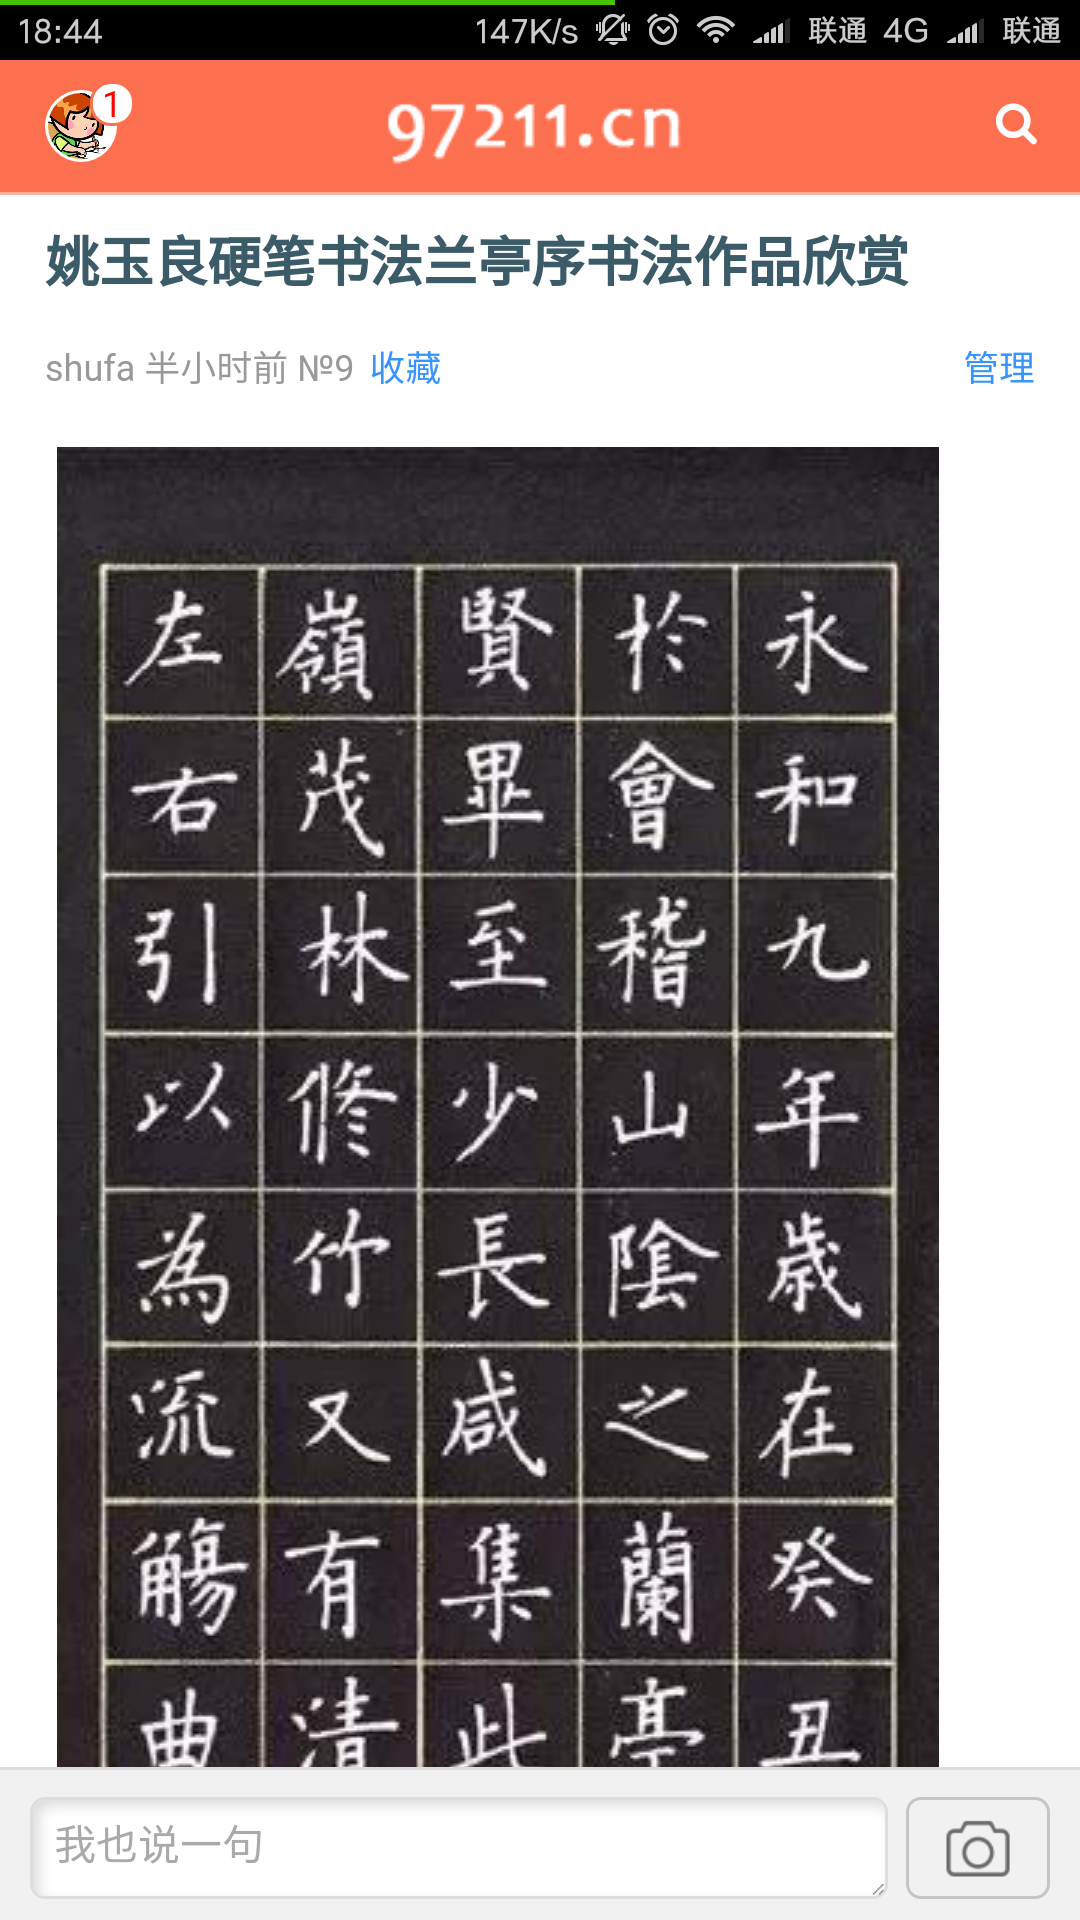 18:44 147K/s 联通 4G 联通
1
97211.cn
姚玉良硬笔书法兰亭序书法作品欣赏
shufa 半小时前 №9 收藏 管理
永和九年歳在癸丑
於會稽山陰之蘭亭
賢畢至少長咸集此
嶺茂林修竹又有清
左右引以為流觴曲
我也说一句